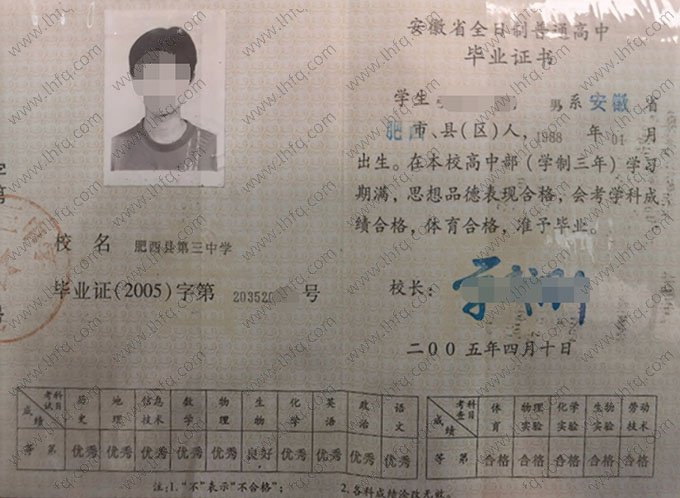 安徽省全日制普通高中
毕业证书
学生 男 系 安徽 省
肥 市、县(区)人，1988 年 01 月
出生。在本校高中部(学制三年)学习
期满，思想品德表现合格，会考学科成
绩合格，体育合格，准予毕业。
校长：
二〇〇五年四月十日
字
第
号
校 名 肥西县第三中学
毕业证(2005)字第 203520 号
考试科目 历史 地理 信息技术 数学 物理 生物 化学 英语 政治 语文
成绩
等第 优秀 优秀 优秀 优秀 优秀 良好 优秀 优秀 优秀 优秀
考查科目 体育 物理实验 化学实验 生物实验 劳动技术
成绩
等第 合格 合格 合格 合格 合格
注:1."不"表示"不合格"；
2.各科成绩涂改无效。
www.lhfq.com